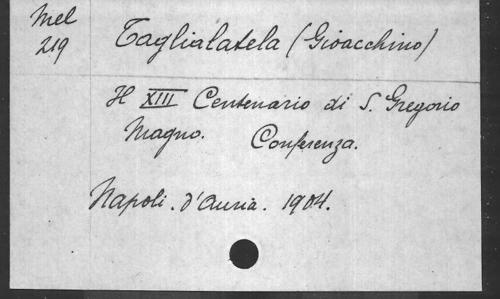 Mel
219
Taglialatela (Gioacchino)
Il XIII Centenario di S. Gregorio
Magno. Conferenza.
Napoli. d'Auria. 1904.